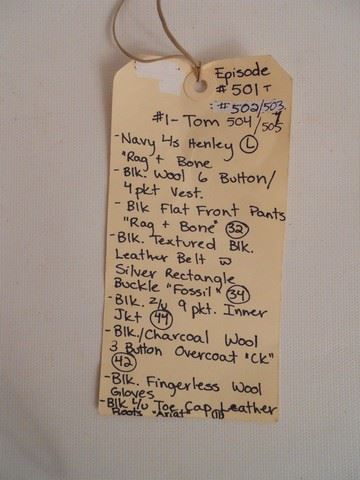 Episode
#501T
#502/503
#1-Tom 504/505
-Navy 4s Henley (L)
"Rag + Bone
-Blk. Wool 6 Button/
4pkt Vest.
- Blk Flat Front Pants
"Rag + Bone" (32)
-Blk. Textured Blk.
Leather Belt w
Silver Rectangle
Buckle "Fossil" (34)
-Blk. z/u 9 pkt. Inner
Jkt (44)
-Blk./Charcoal Wool
3 Button Overcoat "CK"
(42)
-Blk. Fingerless Wool
Gloves
-Blk Toe Cap Leather
Boots "Ariat" (11)